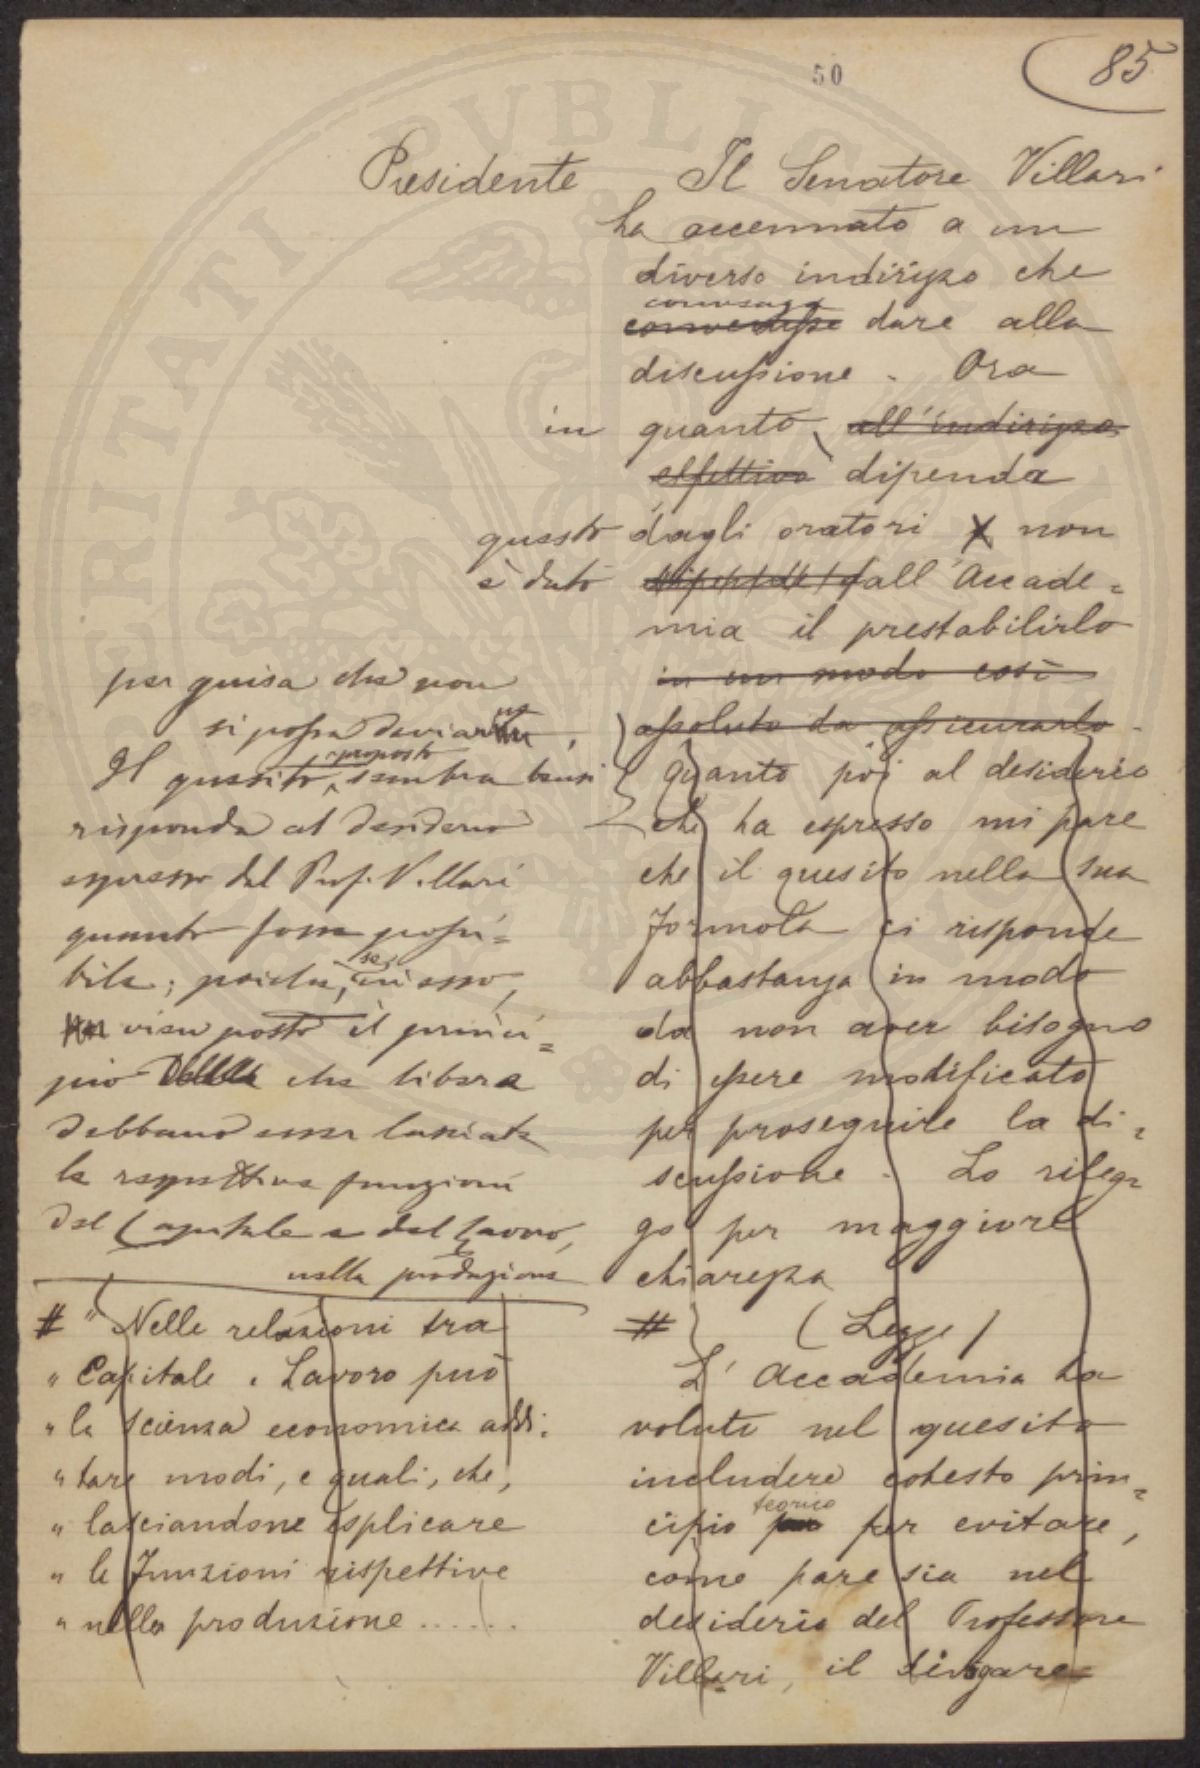 50
85
Presidente
Il Senatore Villari
ha accennato a un
diverso indirizzo che
convenisse dare alla
discussione. Ora
in quanto all'indirizzo
effettivo dipenda
dagli oratori X non
questo
è dato
all'Accade=
mia il prestabilirlo
in un modo così
assoluto da assicurarlo.
Quanto poi al desiderio
che ha espresso mi pare
che il quesito nella sua
formola ci risponde
abbastanza in modo
da non aver bisogno
di essere modificato
per proseguire la di=
scussione. Lo rileg=
go per maggiore
chiarezza
# (Legge)
L'Accademia ha
voluto nel quesito
includere cotesto prin=
cipio teorico per evitare,
come pare sia nel
desiderio del Professore
Villari, il divagare
per guisa che non
si possa deviarne,
Il quesito proposto sembra bensì
risponda al desiderio
espresso dal Prof. Villari
quanto fosse possi=
bile; poichè, se in esso,
vien posto il princi=
pio che libere
debbano esser lasciate
le rispettive funzioni
del Capitale e del Lavoro,
nella produzione
# "Nelle relazioni tra
" Capitale e Lavoro può
" la scienza economica addi=
" tare modi, e quali, che,
" lasciandone esplicare
" le funzioni rispettive
" nella produzione ......